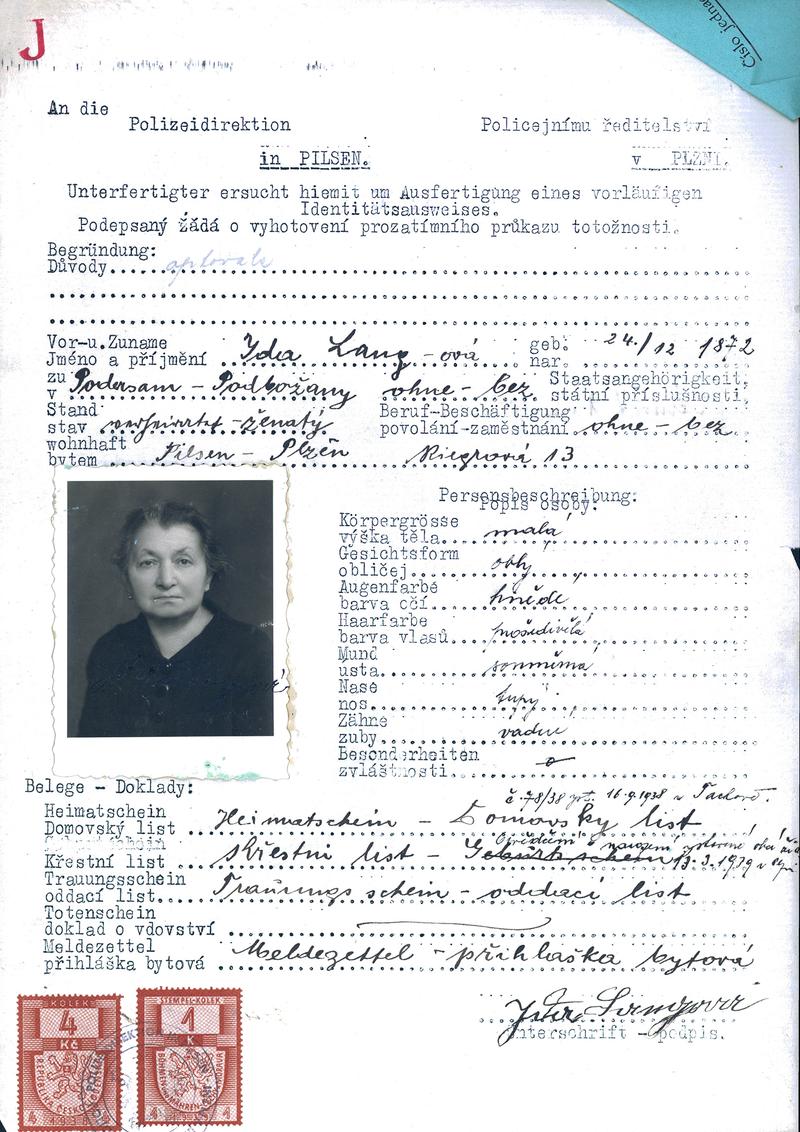 J
Číslo jednac
An die
Polizeidirektion Policejnímu ředitelství
in PILSEN. v PLZNI.
Unterfertigter ersucht hiemit um Ausfertigung eines vorläufigen
Identitätsausweises.
Podepsaný žádá o vyhotovení prozatímního průkazu totožnosti.
Begründung:
Důvody
Vor-u.Zuname Ida Lang-ová geb. 24./12 1872
Jméno a příjmení nar.
zu Podersam - Podbořany ohne - bez Staatsangehörigkeit,
v státní příslušnosti,
Stand verheiratet - ženatý Beruf-Beschäftigung
stav povolání-zaměstnání ohne - bez
wohnhaft Pilsen - Plzěn Riegrová 13
bytem
Persensbeschreibung:
Popis osoby:
Körpergrösse
výška těla malá
Gesichtsform
obličej oblý
Augenfarbe
barva očí hněde
Haarfarbe
barva vlasů prošedivělá
Mund
ústa souměrná
Nase
nos tupý
Zähne
zuby vadné
Besonderheiten
zvláštnosti
Belege - Doklady:
č.78/38 16.9.1938 v Tachově.
Heimatschein
Domovský list Heimatschein - Domovsky list
Křestní list Křestni list - Geburtschein 13.3.1939
Trauungsschein
oddací list Trauungsschein - oddaci list
Totenschein
doklad o vdovství
Meldezettel
přihláška bytová Meldezettel - přihlaška bytová
Ida Langová
Unterschrift - podpis.
KOLEK
4
Kč
REPUBLIKA ČESKOSLOVENSKÁ
4 4
STEMPEL-KOLEK
1
K
BÖHMEN UND MÄHREN
1 1